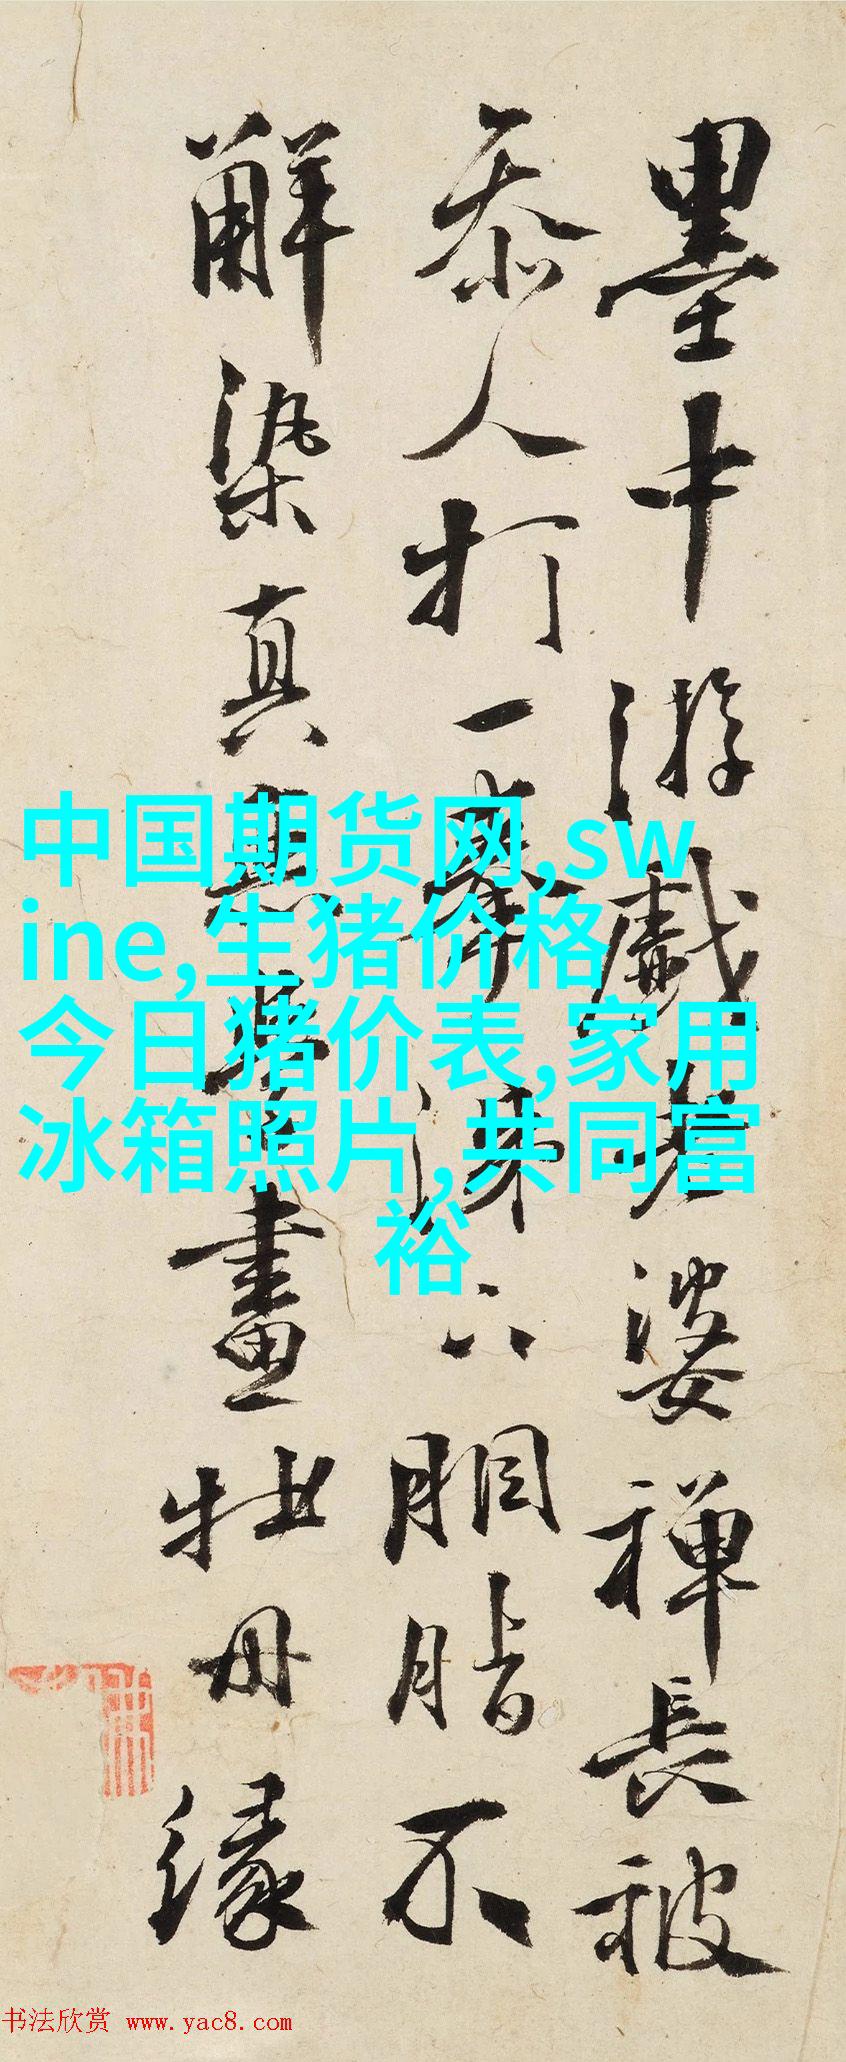 墨中游戲老婆禪長被
參人打一拳涕下胭脂不
解染真畫牡丹緣
中国期货网,sw
ine,生猪价格
今日猪价表,家用
冰箱照片,共同富
裕
书法欣赏 www.yac8.com